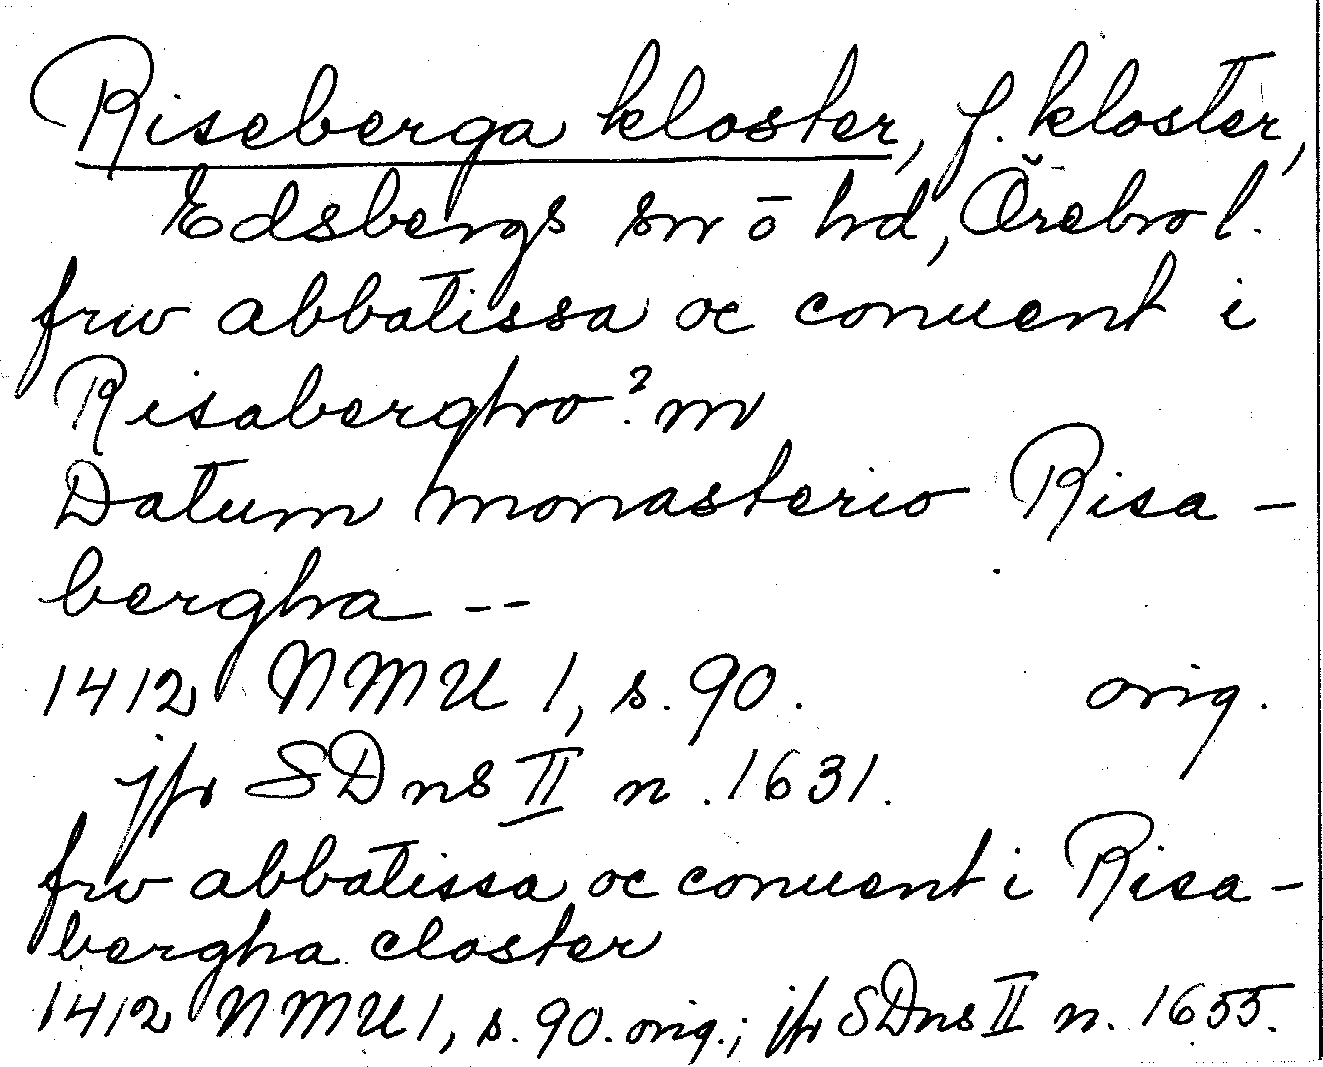 Riseberga kloster, f. kloster,
Edsbergs sn ō hd, Örebro l.
frw abbatissa oc conuent i
Risaberghro? m
Datum monasterio Risa-
bergha --
1412 NMU 1, s. 90. orig.
jfr SDns II n. 1631.
frw abbatissa oc conuent i Risa-
bergha closter
1412 NMU 1, s. 90. orig.; jfr SDns II n. 1655.